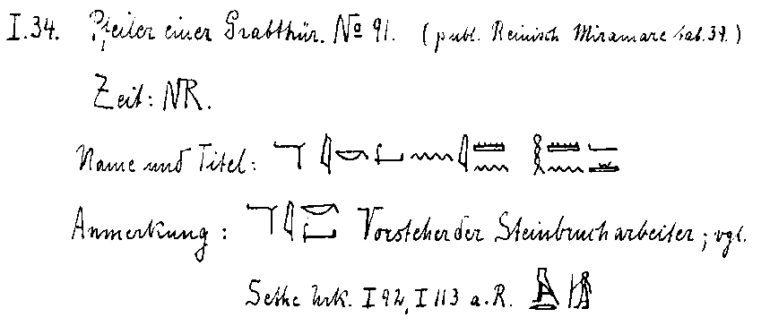 I.34. Pfeiler einer Grabthür. № 91. (publ. Reinisch Miramare tab. 39.)
Zeit: NR.
Name und Titel:
Anmerkung: Vorsteher der Steinbrucharbeiter; vgl.
Sethe Urk. I 92, I 113 a. R.